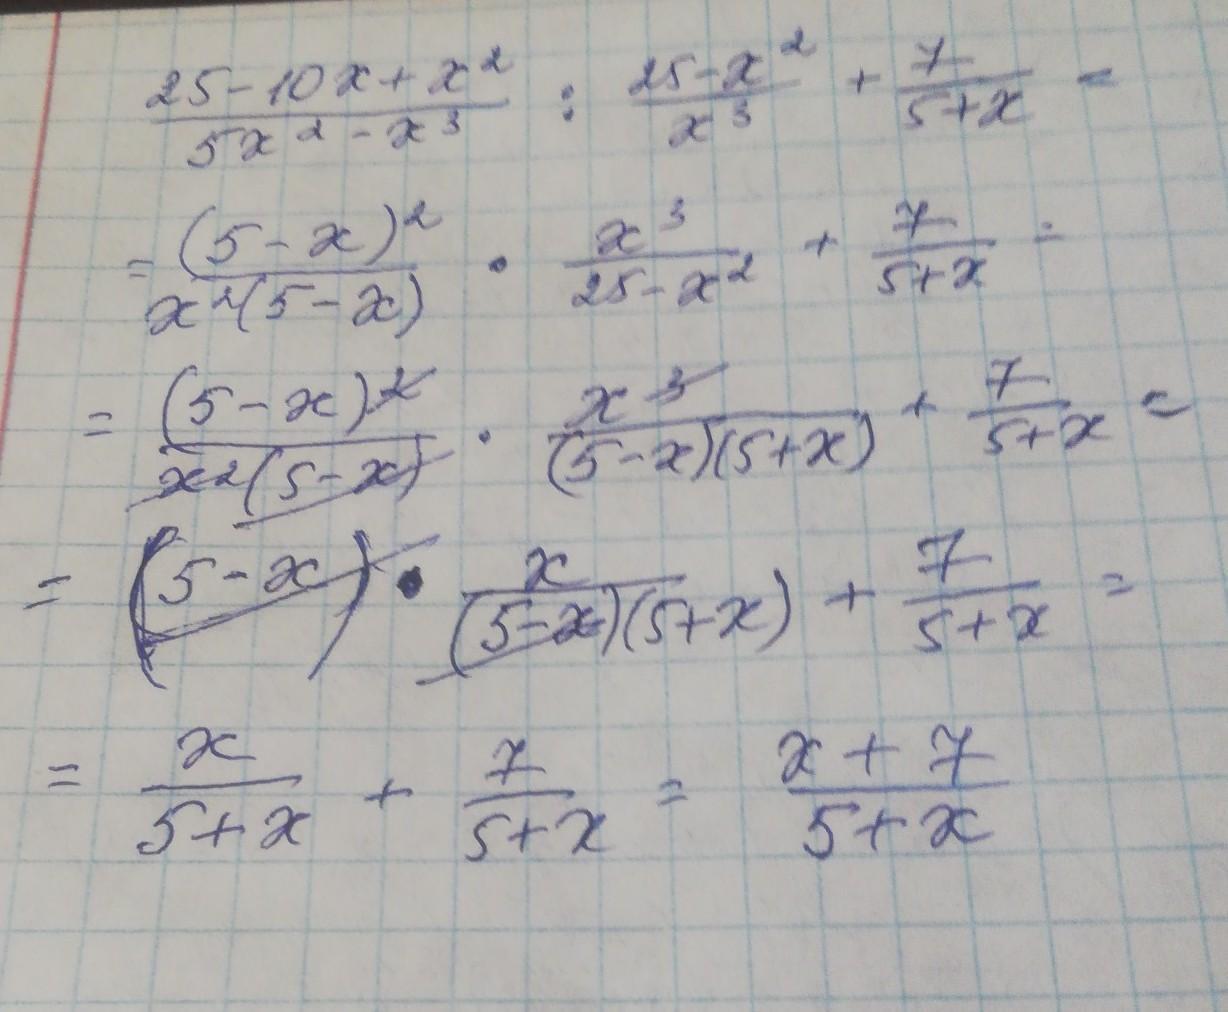 (25-10x+x²)/(5x²-x³) : (25-x²)/(x³) + 7/(5+x) =
= (5-x)²/(x²(5-x)) · x³/(25-x²) + 7/(5+x) =
= (5-x)²/(x²(5-x)) · x³/((5-x)(5+x)) + 7/(5+x) =
= (5-x) · x/((5-x)(5+x)) + 7/(5+x) =
= x/(5+x) + 7/(5+x) = (x+7)/(5+x)